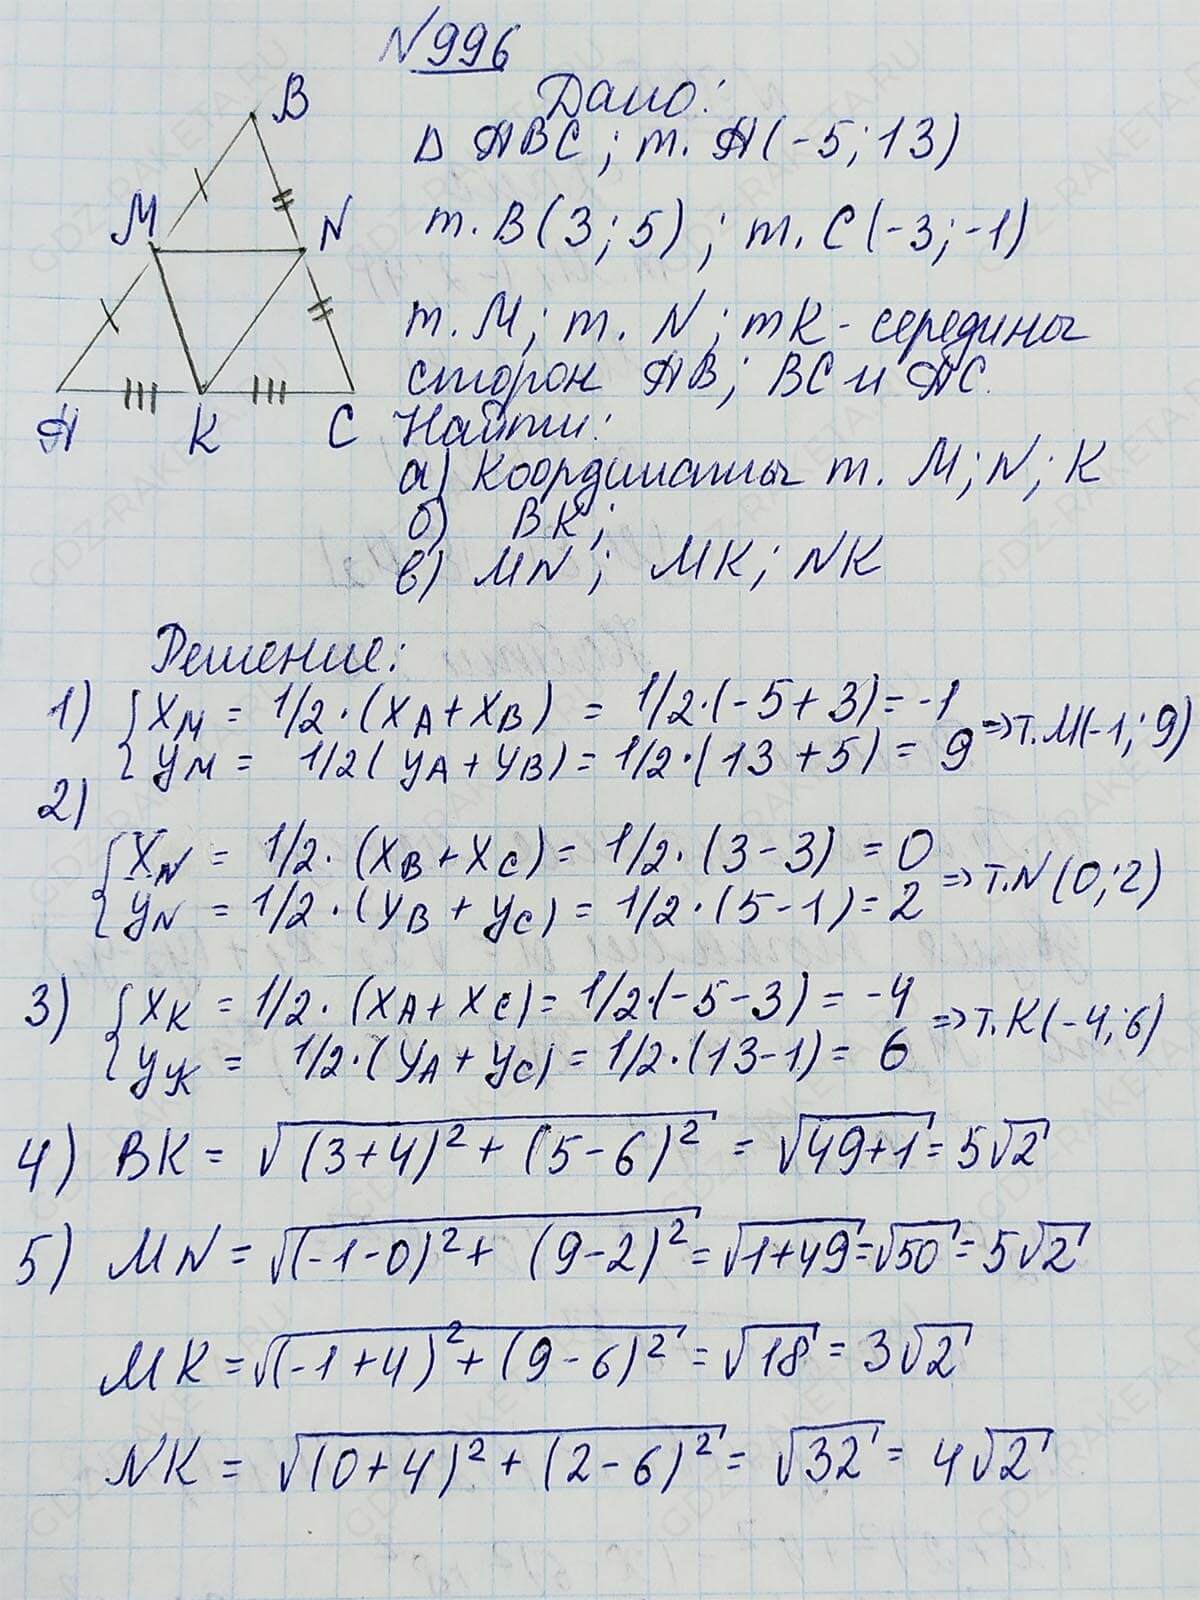 №996
Дано:
Δ ABC; т. A(-5; 13)
т. B(3; 5); т. C(-3; -1)
т. M; т. N; т K - середины
сторон AB; BC и AC.
Найти:
а) Координаты т. M; N; K
б) BK;
в) MN; MK; NK
B
M
N
A
K
C
Решение:
1) { XM = 1/2·(XA+XB) = 1/2·(-5+3) = -1
{ YM = 1/2(YA+YB) = 1/2·(13+5) = 9 => т.M(-1; 9)
2)
{ XN = 1/2·(XB+XC) = 1/2·(3-3) = 0
{ YN = 1/2·(YB+YC) = 1/2·(5-1) = 2 => т.N(0; 2)
3) { XK = 1/2·(XA+XC) = 1/2·(-5-3) = -4
{ YK = 1/2·(YA+YC) = 1/2·(13-1) = 6 => т.K(-4; 6)
4) BK = √((3+4)² + (5-6)²) = √(49+1) = 5√2
5) MN = √((-1-0)² + (9-2)²) = √(1+49) = √50 = 5√2
MK = √((-1+4)² + (9-6)²) = √18 = 3√2
NK = √((0+4)² + (2-6)²) = √32 = 4√2
GDZ-RAKETA.RU